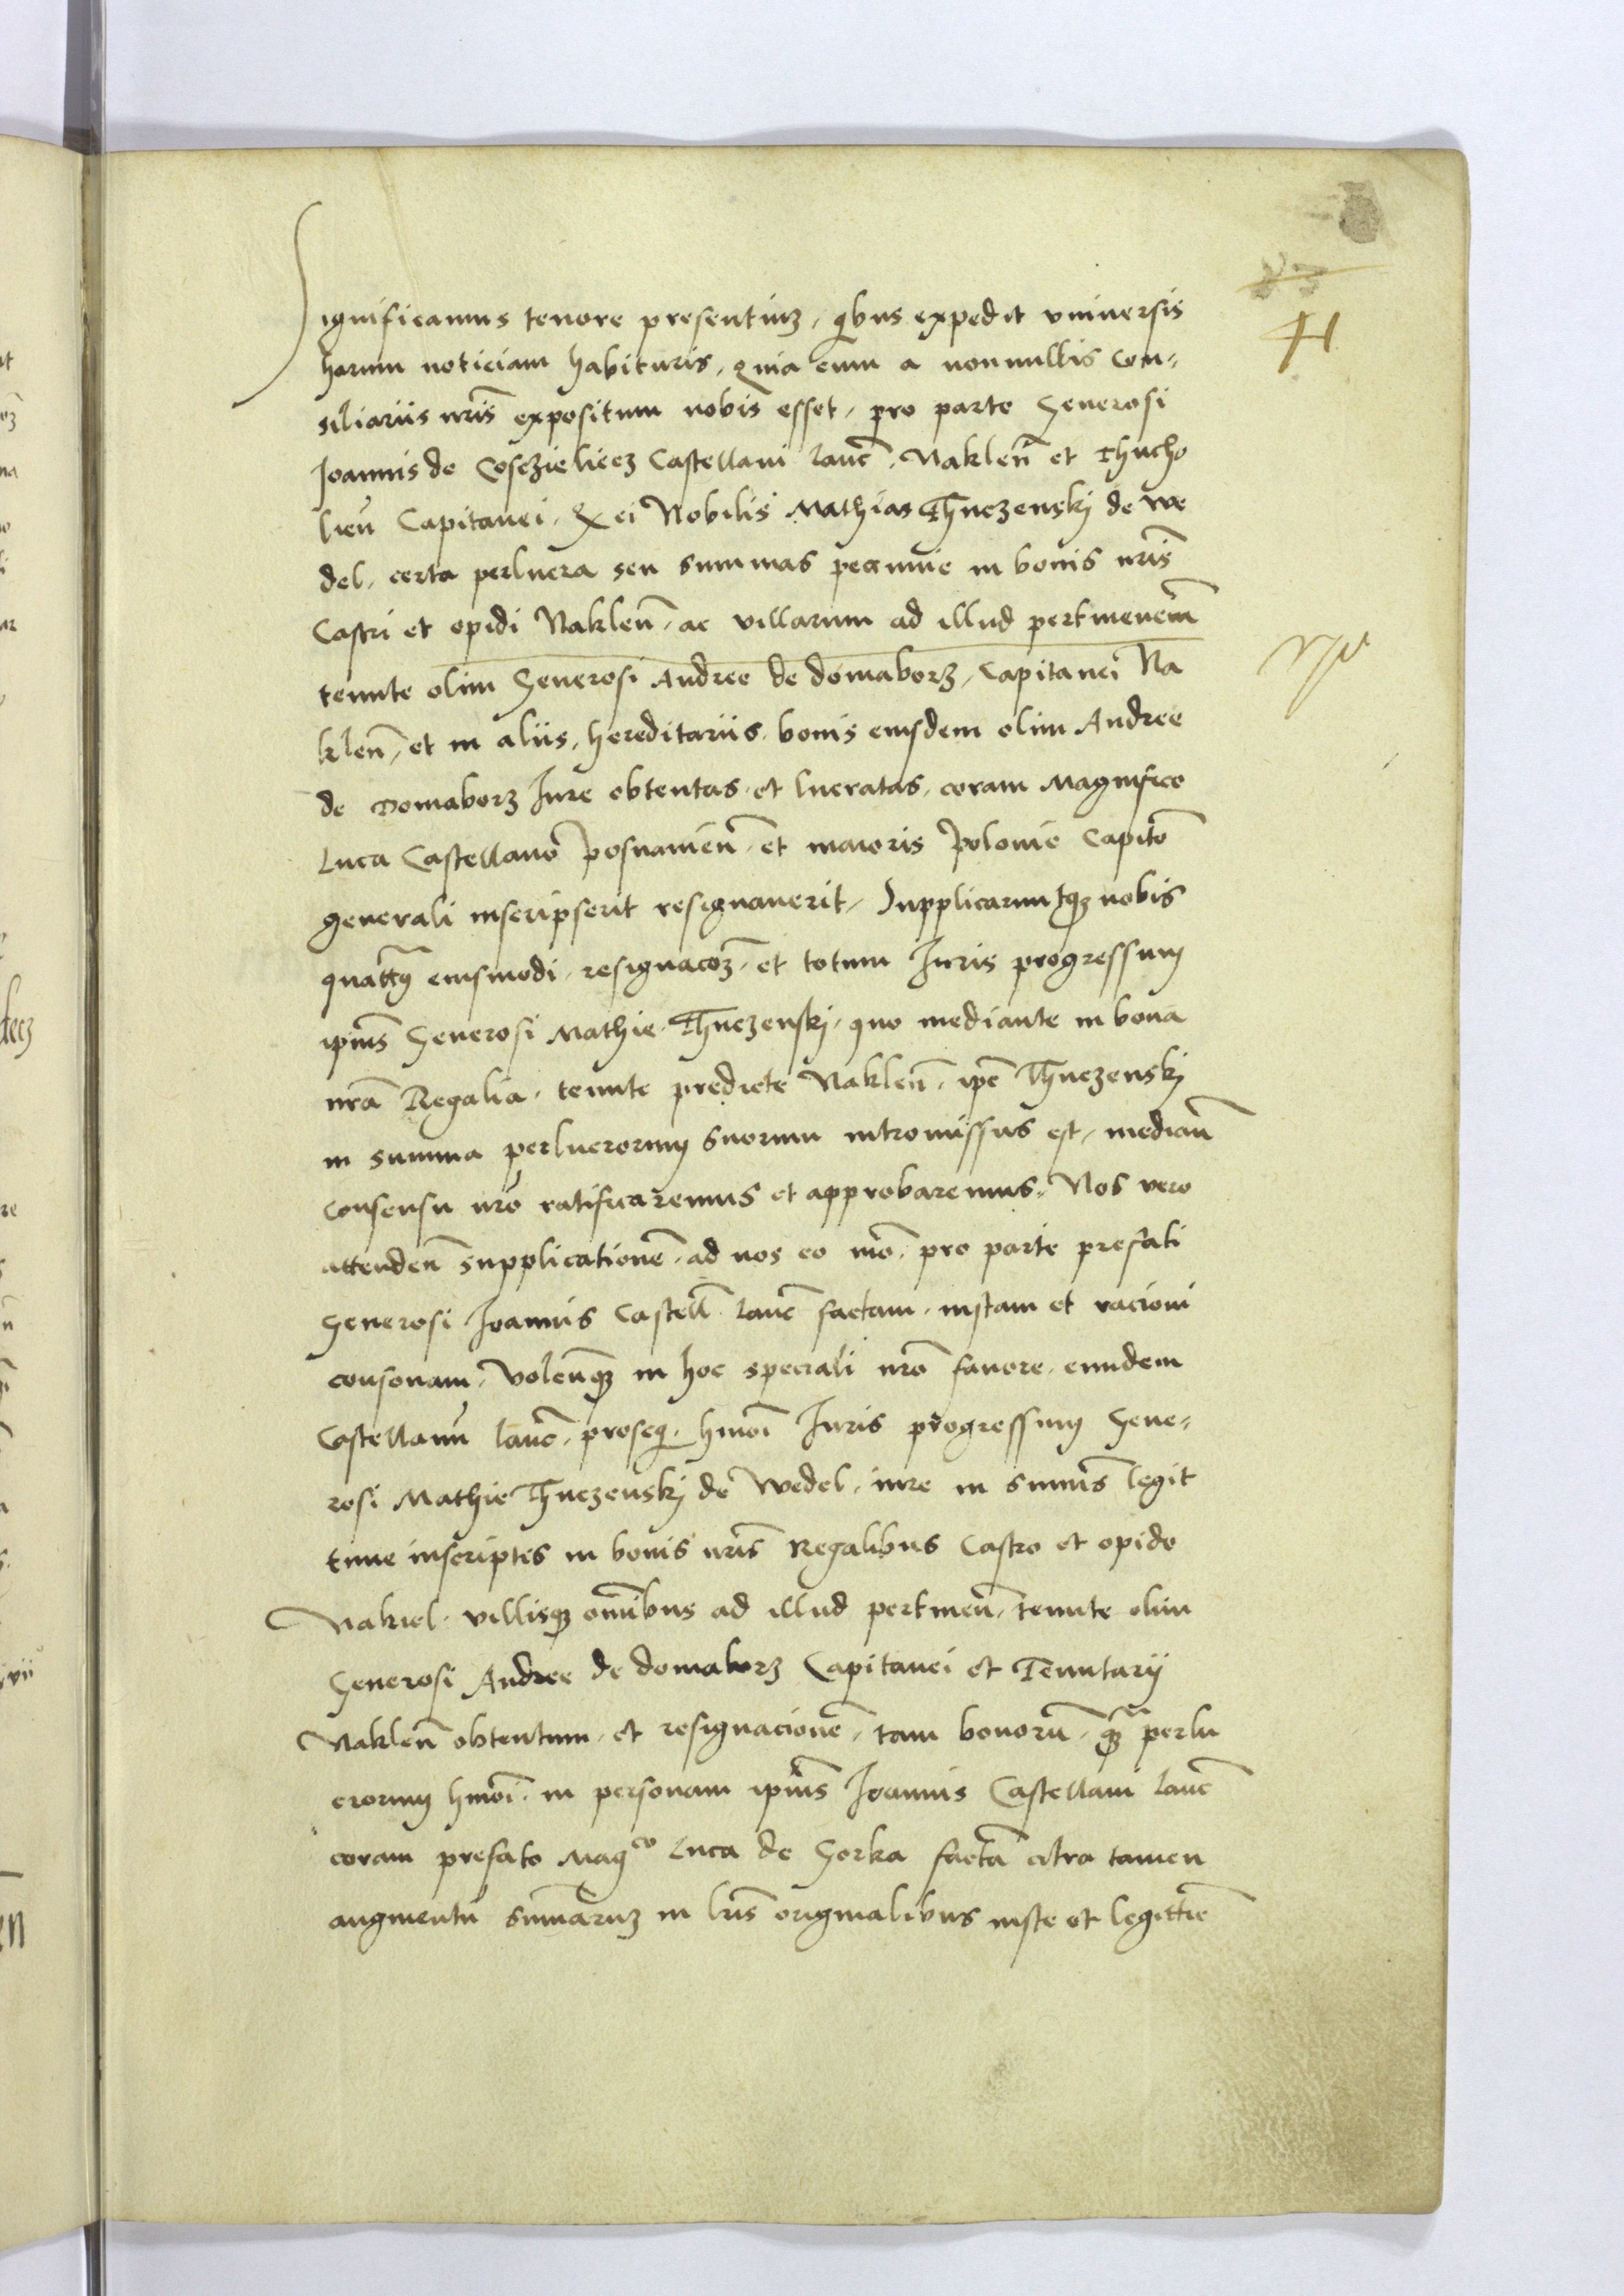 Significamus tenore presentiuz, qbus expedit vniversis
harum noticiam habituris, quia cum a nonnullis Con-
siliariis nris expositum nobis esset, pro parte Generosi
Ioannis de Cosczieliecz Castellani lanc̄, Naklen̄ et Thucho
lien̄ Capitanei, Qx ei Nobilis Mathias Thuczenskj de We
del, certa perlucra seu summas pecunie in bonis nris̄
Castri et opidi Naklen̄, ac villarum ad illud pertinenciū
tenute olim Generosi Andree de domaborz, Capitanei Na
klen̄, et in aliis, hereditariis, bonis eiusdem olim Andree
de Domaborz Iure obtentas, et lucratas, coram Magnifico
Luca Castellano Posnanien̄, et maioris Polonie Capitō
generali inscripserit resignauerit, Supplicaruntqz nobis
quattȝ eiusmodi, resignacōz, et totum Iuris progressum
ipiūs Generosi Mathie Thuczenskj, quo mediante in bona
nrā Regalia, tenute predicte Naklen̄, ipē Thuczenskj
in summa perlucrorum suorum intromissus est, median̄
consensu nrō ratificaremus et approbaremus, Nos vero
attenden̄ supplicationē, ad nos eo mō, pro parte prefati
Generosi Ioannis Castell̄ lanc̄ factam, iustam et racioni
consonam, Volenqz in hoc speciali nrō fauore, eundem
Castellanū lanc̄, proseq, hmoi Iuris progressum Gene-
rosi Mathie Thuczenskj de Wedel, iure in summis legit
time inscriptis in bonis nris̄ Regalibus Castro et opido
Nakiel, villisqz omībus ad illud pertinen̄, tenute olim
Generosi Andree de domaborz Capitanei et Tenutarij
Naklen̄ obtentum, et resignacionē, tam bonorū, qz̄ perlu
crorum hmoi, in personam ipiūs Ioannis Castellani lanc̄
coram prefato Magco Luca de Gorka factā citra tamen
augmentū summaruz in lris̄ originalibus iuste et legittīe